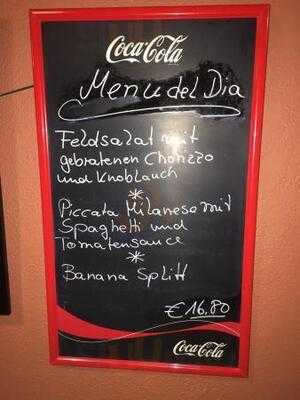 Coca-Cola
Menu del Dia
Feldsalat mit
gebratenen Chorizzo
und Knoblauch
*
Piccata Milanese mit
Spaghetti und
Tomatensauce
*
Banana Splitt
€ 16,80
Coca-Cola